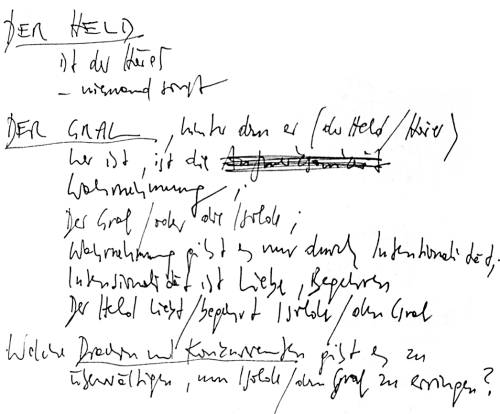 DER HELD
ist der Hörer
– niemand sonst
DER GRAL, hinter dem er (der Held/Hörer)
her ist, ist die
Wahrnehmung;
Der Gral/oder die Isolde;
Wahrnehmung gibt es nur durch Intentionalität;
Intensionalität ist Liebe, Begehren
Der Held liebt/begehrt Isolde/den Gral
Welche Drachen und Konkurrenten gibt es zu
überwältigen, um Isolde/den Gral zu erringen?